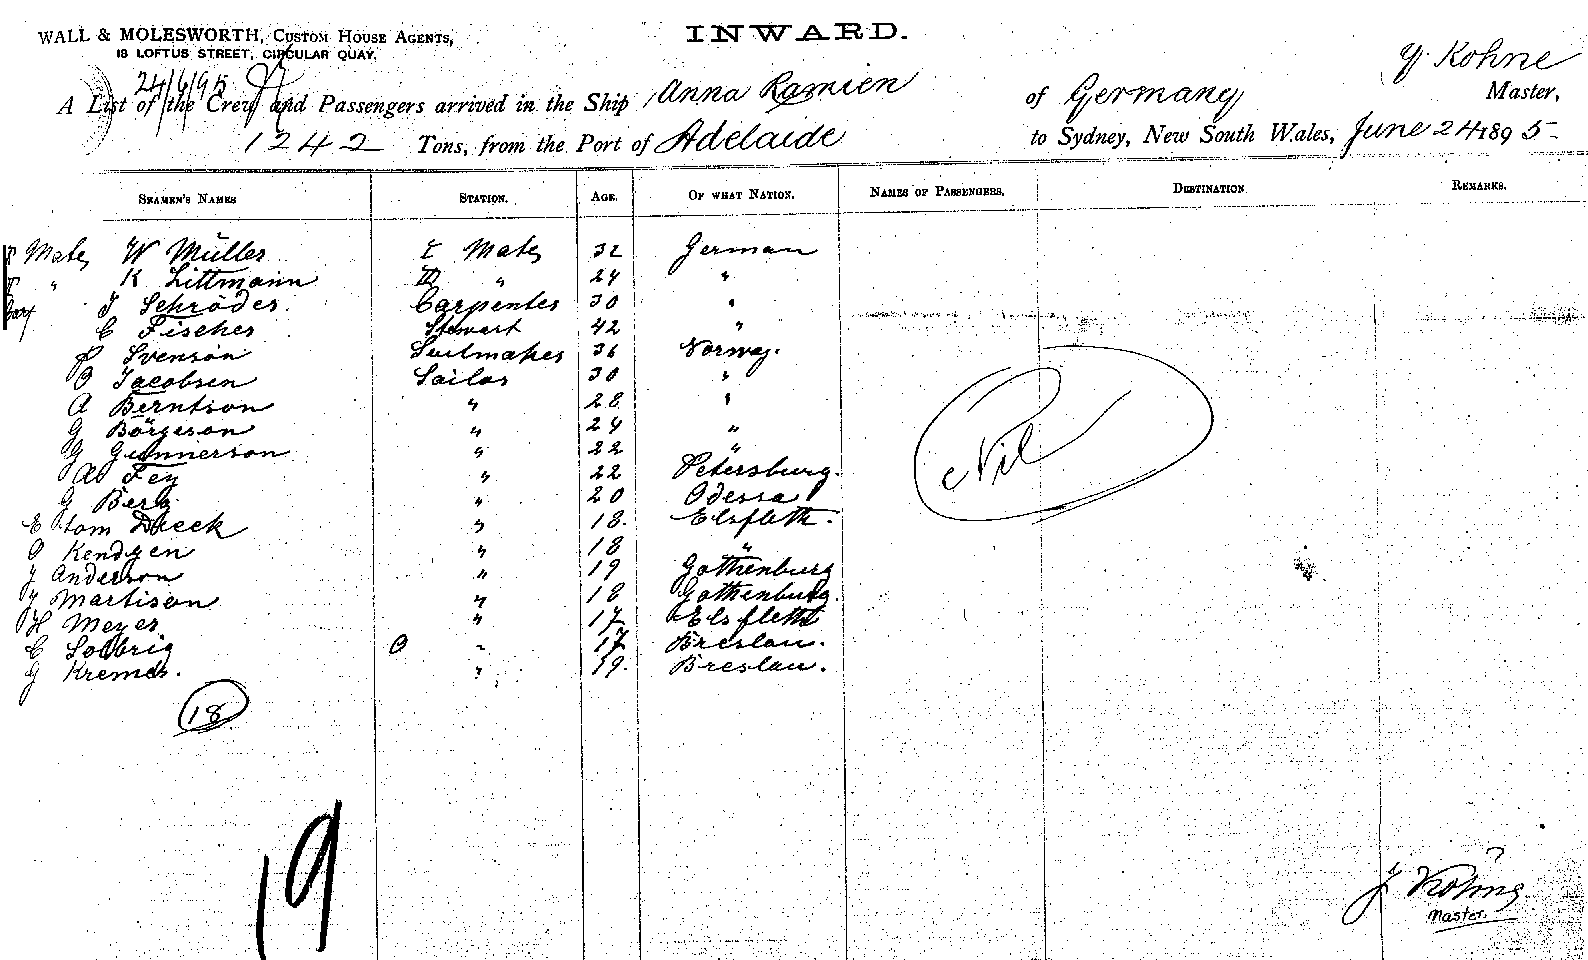 WALL & MOLESWORTH, CUSTOM HOUSE AGENTS,
18 LOFTUS STREET, CIRCULAR QUAY.
INWARD.
24/6/95
Y Kohne
A List of the Crew and Passengers arrived in the Ship Anna Ramien of Germany Master,
1242 Tons, from the Port of Adelaide to Sydney, New South Wales, June 24 1895
SEAMEN'S NAMES STATION. AGE. OF WHAT NATION. NAMES OF PASSENGERS. DESTINATION REMARKS.
Mate W Müller I Mate 32 German
" K Littmann III " 24 "
J Schröder. Carpenter 30 "
C Fischer Stewart 42 "
P Svenson Sailmaker 36 Norway.
O Jacobsen Sailor 30 "
A Berntson " 28 "
G Börgeson " 24 "
G Gunnerson " 22 "
Ad Fey " 22 Petersburg.
G Berg " 20 Odessa
E tom Dieck " 18. Elsfleth.
O Kendgen " 18 "
J Anderson " 19 Gothenburg
J Martison " 18 Gothenburg.
H Meyer " 17 Elsfleth
C Solbrig O " 17 Breslau.
G Kremer. " 19. Breslau.
Nil
18
19
J Köhne
Master.